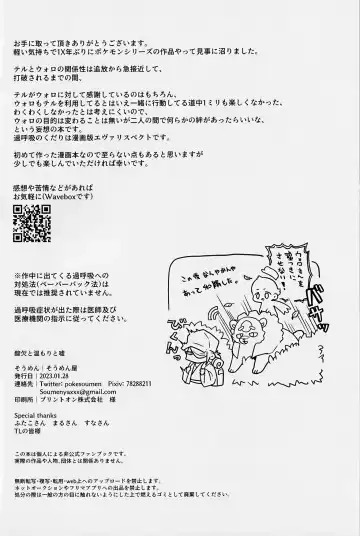 お手に取って頂きありがとうございます。
軽い気持ちで1X年ぶりにポケモンシリーズの作品やって見事に沼りました。
テルとウォロの関係性は追放から急接近して、
打破されるまでの間、
テルがウォロに対して感謝しているのはもちろん、
ウォロもテルを利用してるとはいえ一緒に行動してる道中1ミリも楽しくなかった、
わくわくしなかったとは考えにくいので、
ウォロの目的は変わることは無いが二人の間で何らかの絆があったらいいな、
という妄想の本です。
過呼吸のくだりは漫画版エヴァリスペクトです。
初めて作った漫画本なので至らない点もあると思いますが
少しでも楽しんでいただければ幸いです。
感想や苦情などがあれば
お気軽に(Waveboxです)
この後なんやかんや
あって和解した。
ウォロさんを
焼きつきに
させない!
※作中に出てくる過呼吸への
対処法(ペーパーバック法)は
現在では推奨されていません。
過呼吸症状が出た際は医師及び
医療機関の指示に従ってください。
酸欠と温もりと嘘
そうめん|そうめん屋
発行日|2023.01.28
連絡先|Twitter: pokesoumen Pixiv: 78288211
Soumenyaxxx@gmail.com
印刷所|プリントオン株式会社 様
Special thanks
ふたこさん まるさん すなさん
TLの皆様
この本は個人による非公式ファンブックです。
実際の作品や人物、団体とは関係ありません。
無断転写・複写・転用・web上へのアップロードを禁止します。
ネットオークションやフリマアプリへの出品を禁止します。
処分の際は一般の方の目に触れないようにした上で燃えるゴミとして廃棄してください。